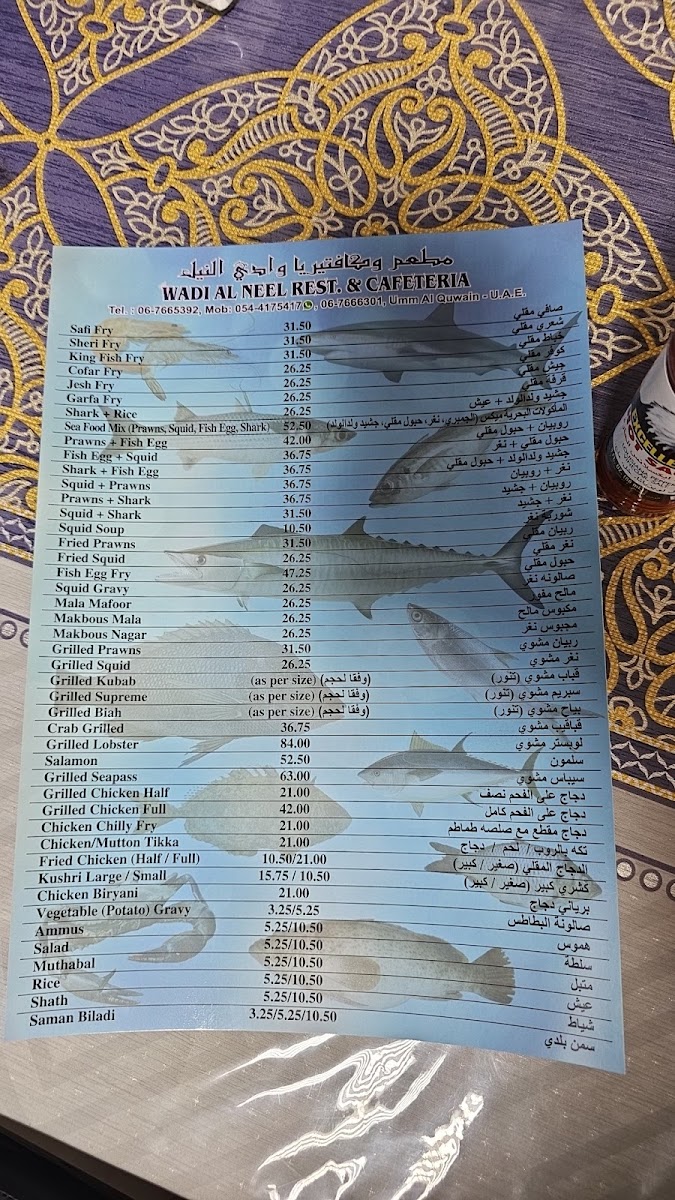 مطعم وكافتيريا وادي النيل
WADI AL NEEL REST. & CAFETERIA
Tel. : 06-7665392, Mob: 054-4175417, 06-7666301, Umm Al Quwain - U.A.E.
Safi Fry 31.50 صافي مقلي
Sheri Fry 31.50 شعري مقلي
King Fish Fry 31.50 خباط مقلي
Cofar Fry 26.25 كوفر مقلي
Jesh Fry 26.25 جيش مقلي
Garfa Fry 26.25 قرفة مقلي
Shark + Rice 26.25 جشيد ولدالولد + عيش
Sea Food Mix (Prawns, Squid, Fish Egg, Shark) 52.50 المأكولات البحرية ميكس (الجمبري، نغر، حبول مقلي، جشيد ولدالولد)
Prawns + Fish Egg 42.00 روبيان + حبول مقلي
Fish Egg + Squid 36.75 حبول مقلي + نغر
Shark + Fish Egg 36.75 جشيد ولدالولد + حبول مقلي
Squid + Prawns 36.75 نغر + روبيان
Prawns + Shark 36.75 روبيان + جشيد
Squid + Shark 31.50 نغر + جشيد
Squid Soup 10.50 شوربة نغر
Fried Prawns 31.50 ربيان مقلي
Fried Squid 26.25 نغر مقلي
Fish Egg Fry 47.25 حبول مقلي
Squid Gravy 26.25 صالونه نغر
Mala Mafoor 26.25 مالح مفور
Makbous Mala 26.25 مكبوس مالح
Makbous Nagar 26.25 مجبوس نغر
Grilled Prawns 31.50 ربيان مشوي
Grilled Squid 26.25 نغر مشوي
Grilled Kubab (as per size) (وفقا لحجم) قباب مشوي (تنور)
Grilled Supreme (as per size) (وفقا لحجم) سبريم مشوي (تنور)
Grilled Biah (as per size) (وفقا لحجم) بياح مشوي (تنور)
Crab Grilled 36.75 قباقيب مشوي
Grilled Lobster 84.00 لوبستر مشوي
Salamon 52.50 سلمون
Grilled Seapass 63.00 سيباس مشوي
Grilled Chicken Half 21.00 دجاج على الفحم نصف
Grilled Chicken Full 42.00 دجاج على الفحم كامل
Chicken Chilly Fry 21.00 دجاج مقطع مع صلصه طماطم
Chicken/Mutton Tikka 21.00 تكه بالروب / لحم / دجاج
Fried Chicken (Half / Full) 10.50/21.00 الدجاج المقلي (صغير / كبير)
Kushri Large / Small 15.75 / 10.50 كشري كبير (صغير / كبير)
Chicken Biryani 21.00 برياني دجاج
Vegetable (Potato) Gravy 3.25/5.25 صالونة البطاطس
Ammus 5.25/10.50 هموس
Salad 5.25/10.50 سلطة
Muthabal 5.25/10.50 متبل
Rice 5.25/10.50 عيش
Shath 5.25/10.50 شياط
Saman Biladi 3.25/5.25/10.50 سمن بلدي